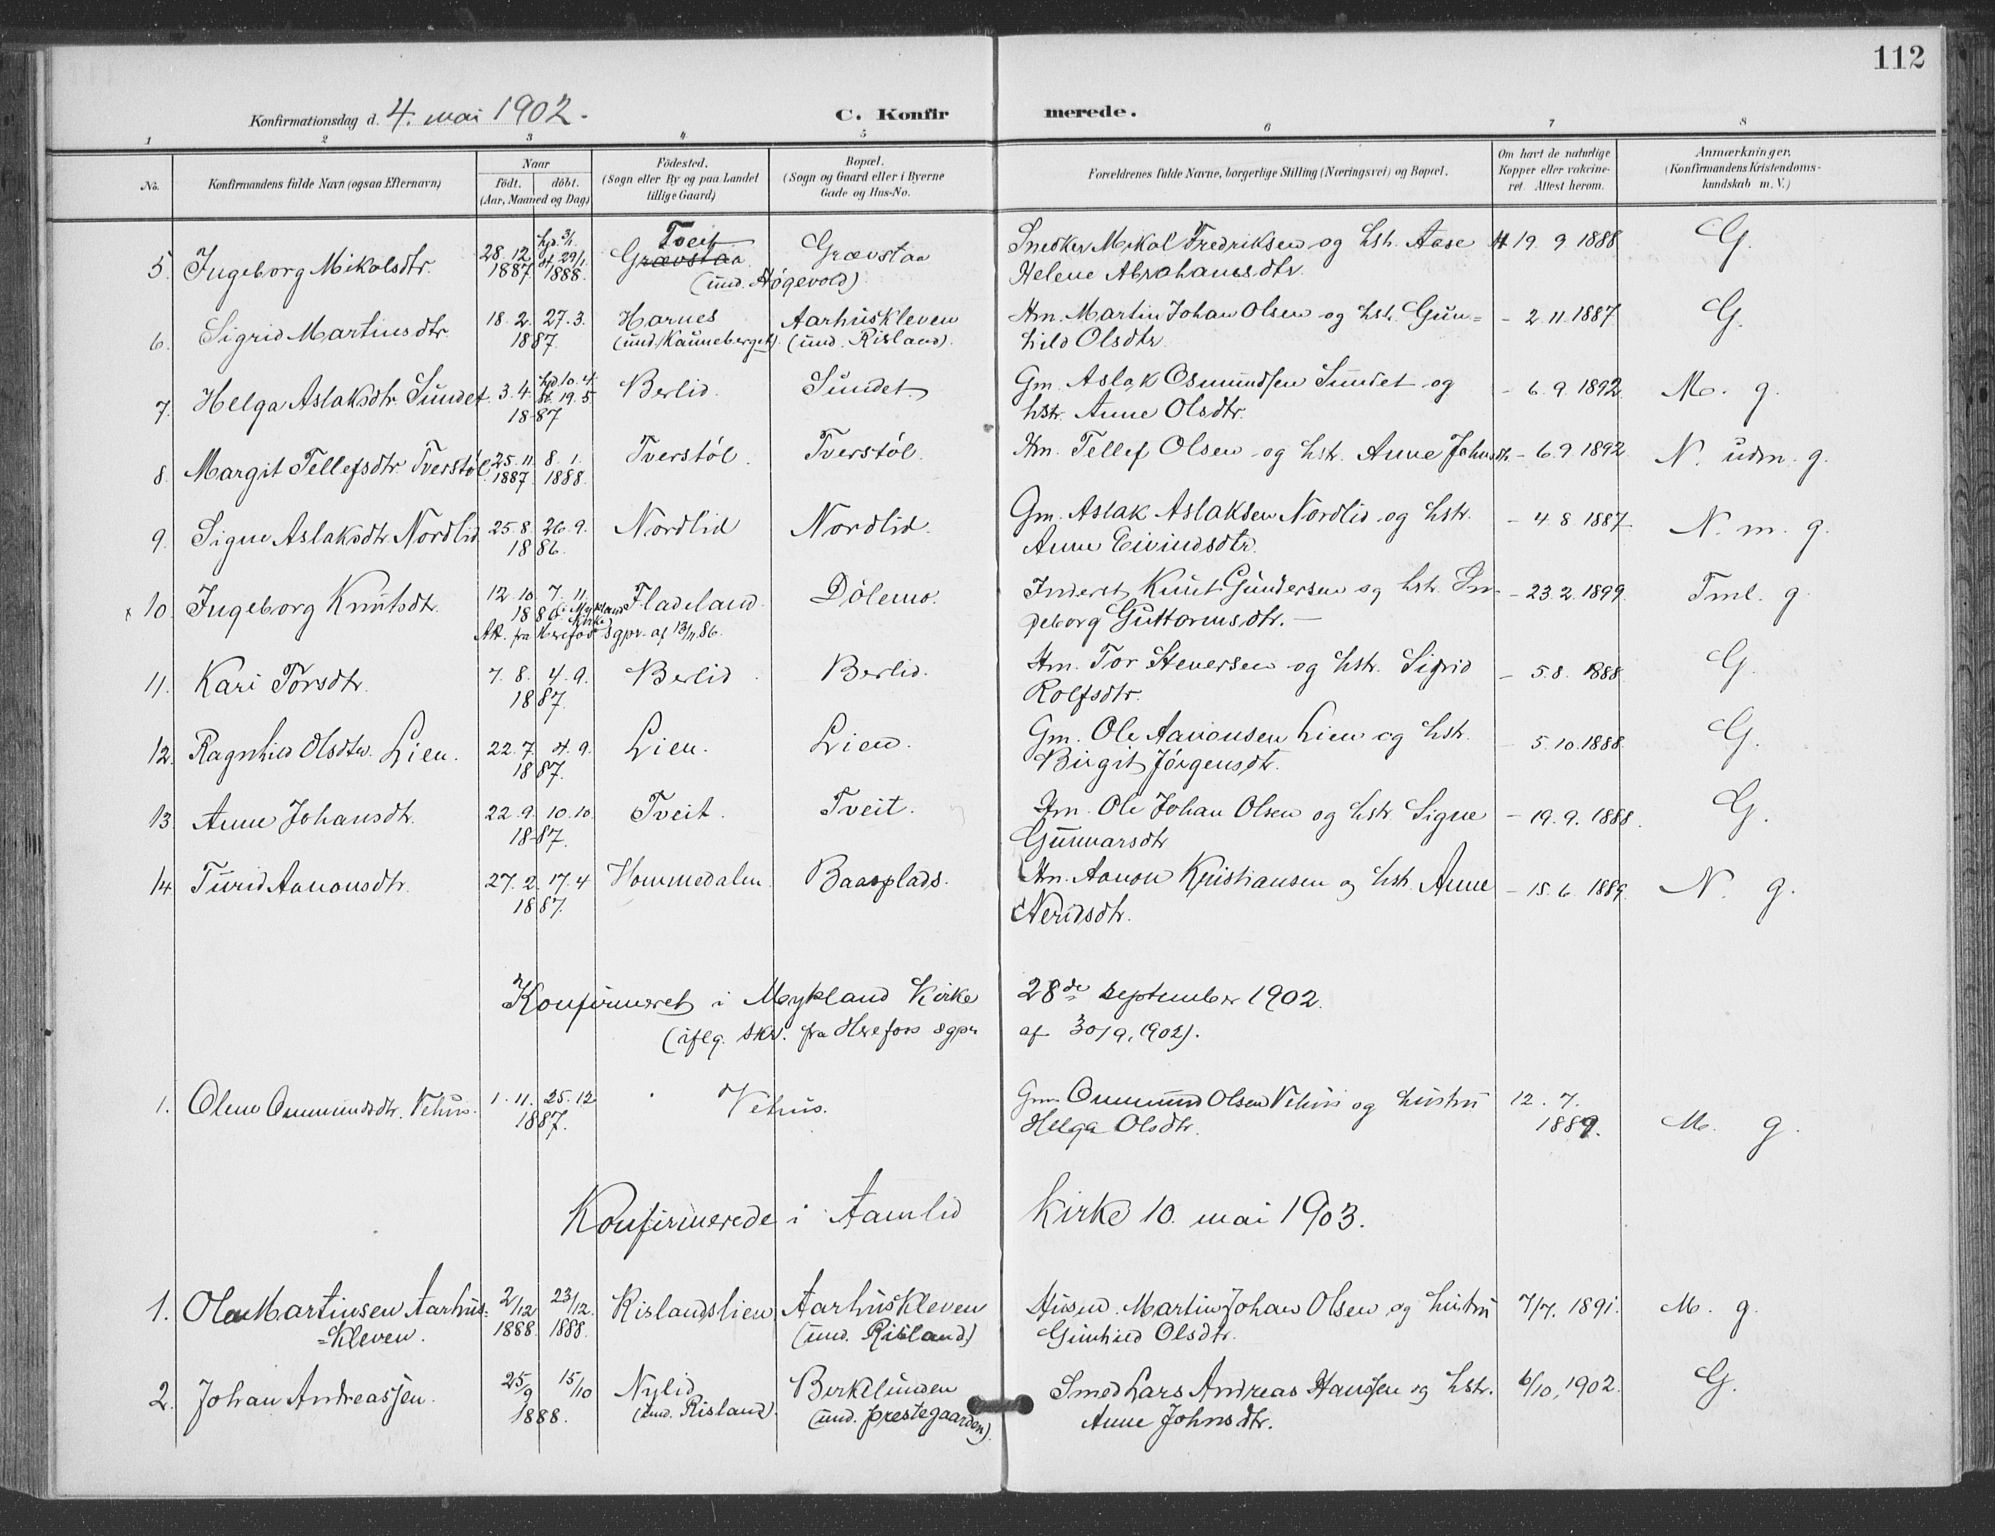 112
Konfirmationsdag d. 4. mai 1902.
C. Konfirmerede.
1 2 3 4 5 6 7 8
No. Konfirmandens fulde Navn (ogsaa Efternavn)
Naar
født. døbt.
(Aar, Maaned og Dag)
Födested.
(Sogn eller By og paa Landet
tillige Gaard)
Bopæl.
(Sogn og Gaard eller i Byerne
Gade og Hus-No.
Forældrenes fulde Navne, borgerlige Stilling (Næringsvei) og Bopæl.
Om havt de naturlige
Kopper eller vakcine-
ret. Attest herom.
Anmærkninger.
(Konfirmandens Kristendoms-
kundskab m. V.)
5. Ingeborg Mikalsdtr. 28.12. 1887 hjd. 3/1. st. 29/1. 1888. Tveit Grævstaa (und. Høgevold) Grævstaa Snedker Mikal Fredriksen og hst. Aase H. 19. 9 1888 G.
Helene Abrahamsdtr.
6. Sigrid Martinsdtr 18. 2. 27. 3. Harnes Aarhuskleven Hm. Martin Johan Olsen og hst. Gun= - 2. 11. 1887 G.
1887. (und. Kauneberget) (und. Risland). hild Olsdtr
7. Helga Aslaksdtr Sundet 3. 4. hjd. 10. 4. st. 19. 5 Berlid. Sundet Gm. Aslak Osmundsen Sundet og - 6. 9. 1892 M. g.
1887 hstr. Anne Olsdtr.
8. Margit Tellefsdtr Tverstøl 25. 11. 8. 1. Tverstøl. Tverstøl. Hm. Tellef Olsen og hstr. Anne Johnsdtr. - 6. 9 1892 N. udm. g.
1887. 1888.
9. Signe Aslaksdtr Nordlid 25. 8. 26. 9. Nordlid Nordlid. Gm. Aslak Aslaksen Nordlid og hstr. - 4. 8. 1887 N. m. g.
1886. Anne Eivindsdtr.
x 10. Ingeborg Knutsdtr. 12. 10. 7. 11. Fladeland. Dølemo. Inderst Knut Gundersen og hstr. In- - 23. 2. 1899. Tml. g.
1886. i Mykland Kirke geborg Guttormsdtr. -
Att. fra Herefos sgpr. af 13/11 86.
11. Kari Torsdtr. 7. 8. 4. 9. Berlid. Berlid. Hm. Tor Steversen og hstr. Sigrid - 5. 8. 1888 G.
1887. Rolfsdtr.
12. Ragnhild Olsdtr. Lien. 22. 7. 4. 9. Lien. Lien. Gm. Ole Aanonsen Lien og hstr. - 5. 10. 1888. G.
1887. Birgit Jørgensdtr.
13. Anne Johansdtr. 22. 9. 10. 10. Tveit. Tveit. Hm. Ole Johan Olsen og hstr Signe - 19. 9. 1888. G.
1887. Gunnarsdtr
14. Turid Aanonsdtr. 27. 2. 17. 4 Hommedalen. Baasplads. Hm. Aanon Kristiansen og hst. Anne - 15. 6 1889. N. g.
1887. Neridsdtr.
Konfirmeret i Mykland Kirke 28de september 1902.
(iflg. skr. fra Herefoss sgpr af 30/9. 1902).
1. Olene Ommundsdtr. Vehus. 1. 11. 25. 12 Vehus. Gm. Ommund Olsen Vehus og hustru 12. 7.
1887. Helga Olsdtr. 1889. M. g.
Konfirmerede i Aamlid Kirke 10. mai 1903.
1. Ole Martinsen Aarhus= 2/12 23/12. Rislandslien Aarhuskleven Husmd. Martin Johan Olsen og hustru 7/7. 1891. M. g.
=kleven. 1888. 1888. (und. Risland) Gunhild Olsdtr.
2. Johan Andreassen. 25/9 15/10 Nylid Birkelunden Smed Lars Andreas Hansen og hstr. 6/10, 1902. G.
1888. (und. Risland). (und. prestegaarden). Anne Johnsdtr.